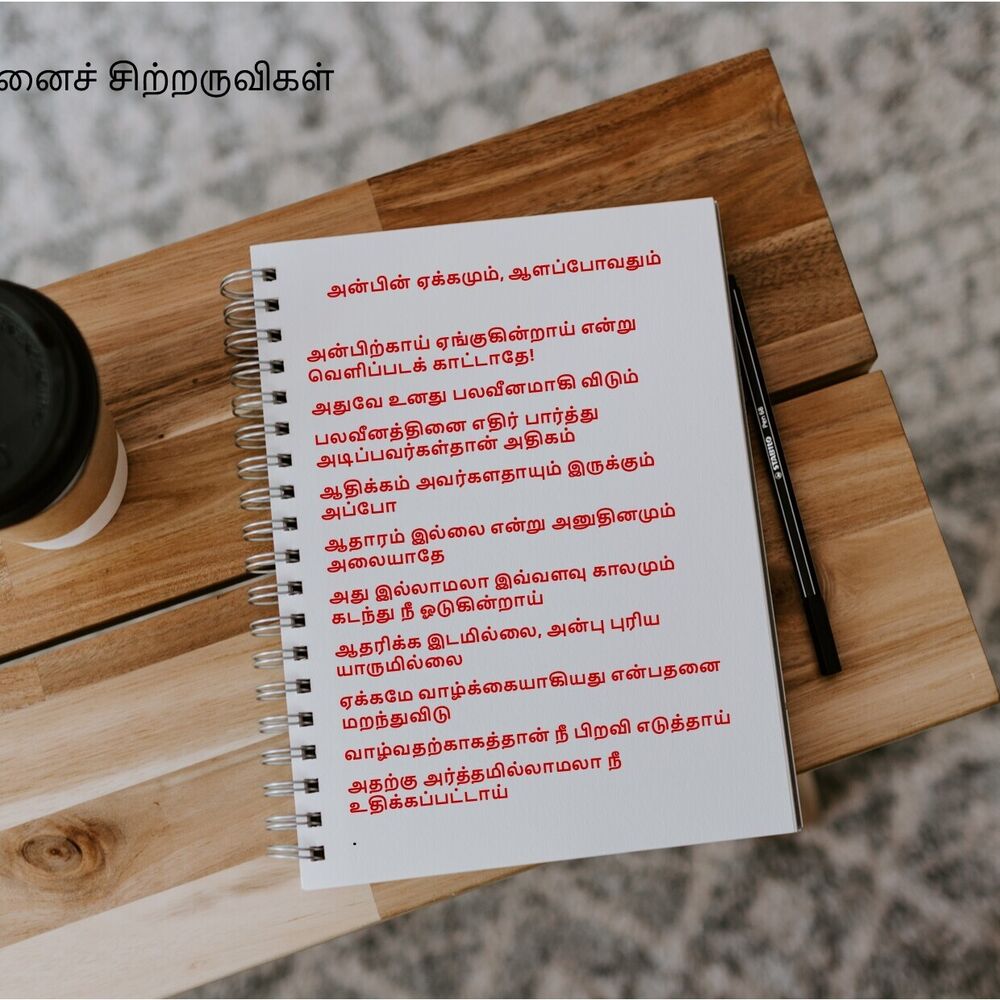 னைச் சிற்றருவிகள்
அன்பின் ஏக்கமும், ஆளப்போவதும்
அன்பிற்காய் ஏங்குகின்றாய் என்று
வெளிப்படக் காட்டாதே!
அதுவே உனது பலவீனமாகி விடும்
பலவீனத்தினை எதிர் பார்த்து
அடிப்பவர்கள்தான் அதிகம்
ஆதிக்கம் அவர்களதாயும் இருக்கும்
அப்போ
ஆதாரம் இல்லை என்று அனுதினமும்
அலையாதே
அது இல்லாமலா இவ்வளவு காலமும்
கடந்து நீ ஓடுகின்றாய்
ஆதரிக்க இடமில்லை, அன்பு புரிய
யாருமில்லை
ஏக்கமே வாழ்க்கையாகியது என்பதனை
மறந்துவிடு
வாழ்வதற்காகத்தான் நீ பிறவி எடுத்தாய்
அதற்கு அர்த்தமில்லாமலா நீ
உதிக்கப்பட்டாய்
.
STABILO Pen 68